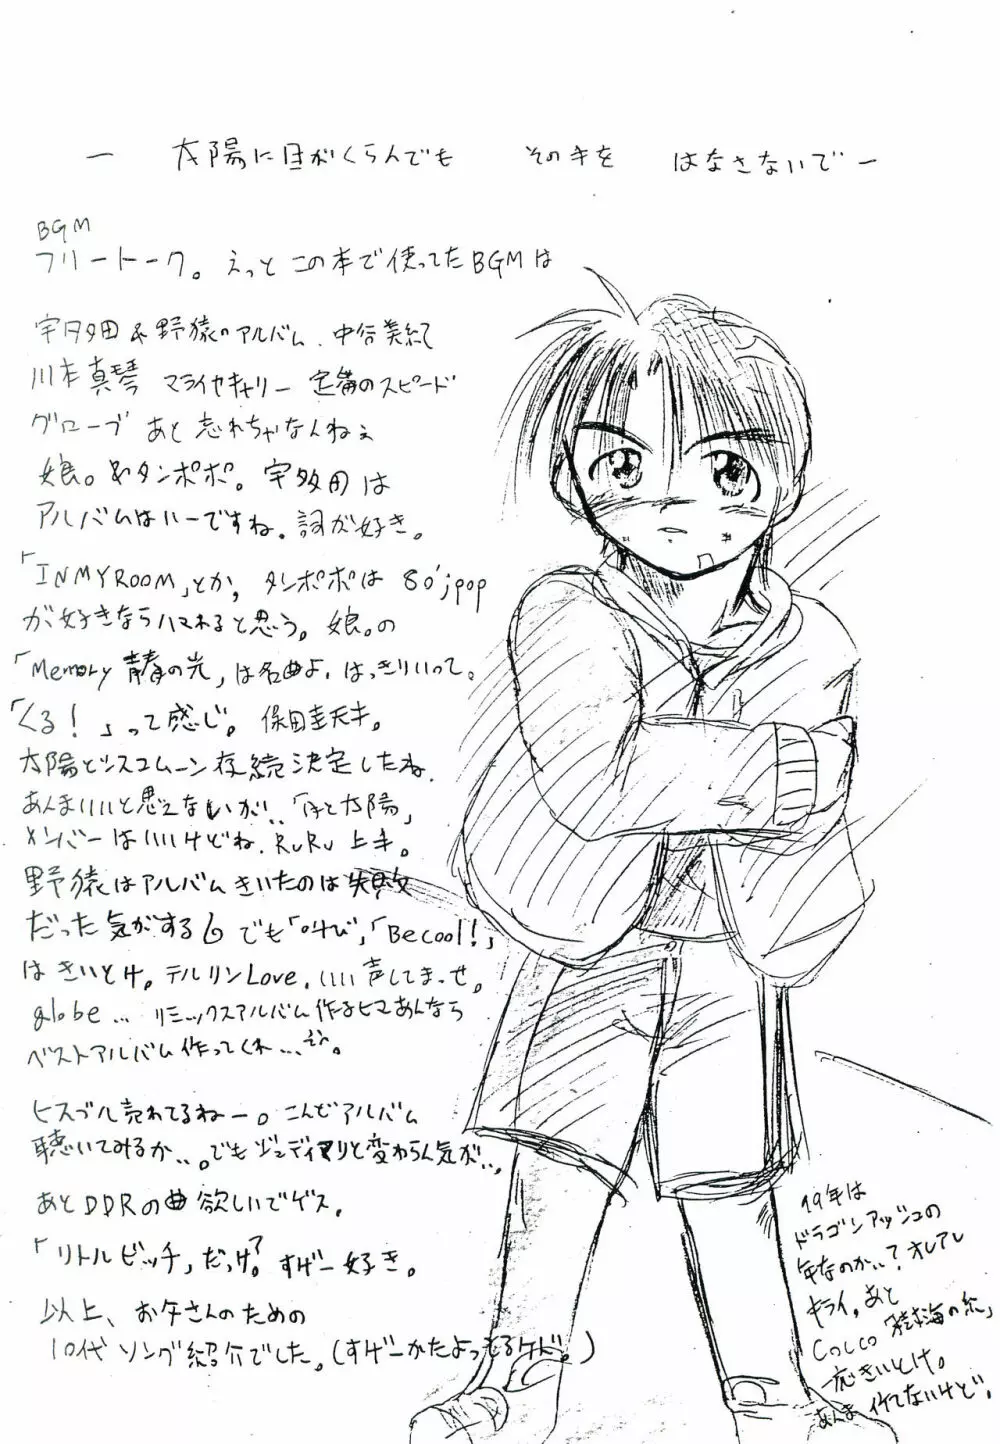 ― 太陽に目がくらんでも その手を はなさないで ―
BGM
フリートーク。えっと この本で使ってたBGMは
宇多田 & 野猿のアルバム、中谷美紀
川本真琴 マライヤキャリー 定番のスピード
グローブ あと 忘れちゃなんねぇ
娘。&タンポポ。宇多田は
アルバムはいーですね。詞が好き。
「IN MY ROOM」とか、タンポポは 80'jpop
が好きならハマれると思う。娘。の
「Memory 青春の光」は名曲よ、はっきりいって。
「くる!」って感じ。保田圭天才。
太陽とシスコムーン存続決定したね、
あんまいいと思えないが、、「月と太陽」
メンバーはいいけどね、RuRu 上手。
野猿はアルバムきいたのは失敗
だった気がする でも「叫び」,「Be cool!」
は きいとけ。テルリンLove、いい声してまっせ。
globe... リミックスアルバム作るヒマあんなら
ベストアルバム作ってくれ...
ヒスブル売れてるねー。こんどアルバム
聴いてみるか、、。でもジュディマリと変わらん気が、、。
あとDDRの曲欲しいでゲス。
「リトルビッチ」だっけ?すげー好き。
以上、お父さんのための
10代ソング紹介でした。(すげーかたよってるケド。)
19年は
ドラゴンアッシュの
年なのか、、?オレアレ
キライ。あと
Cocco「樹海の糸」
一応きいとけ。
あんま 似てないけど。